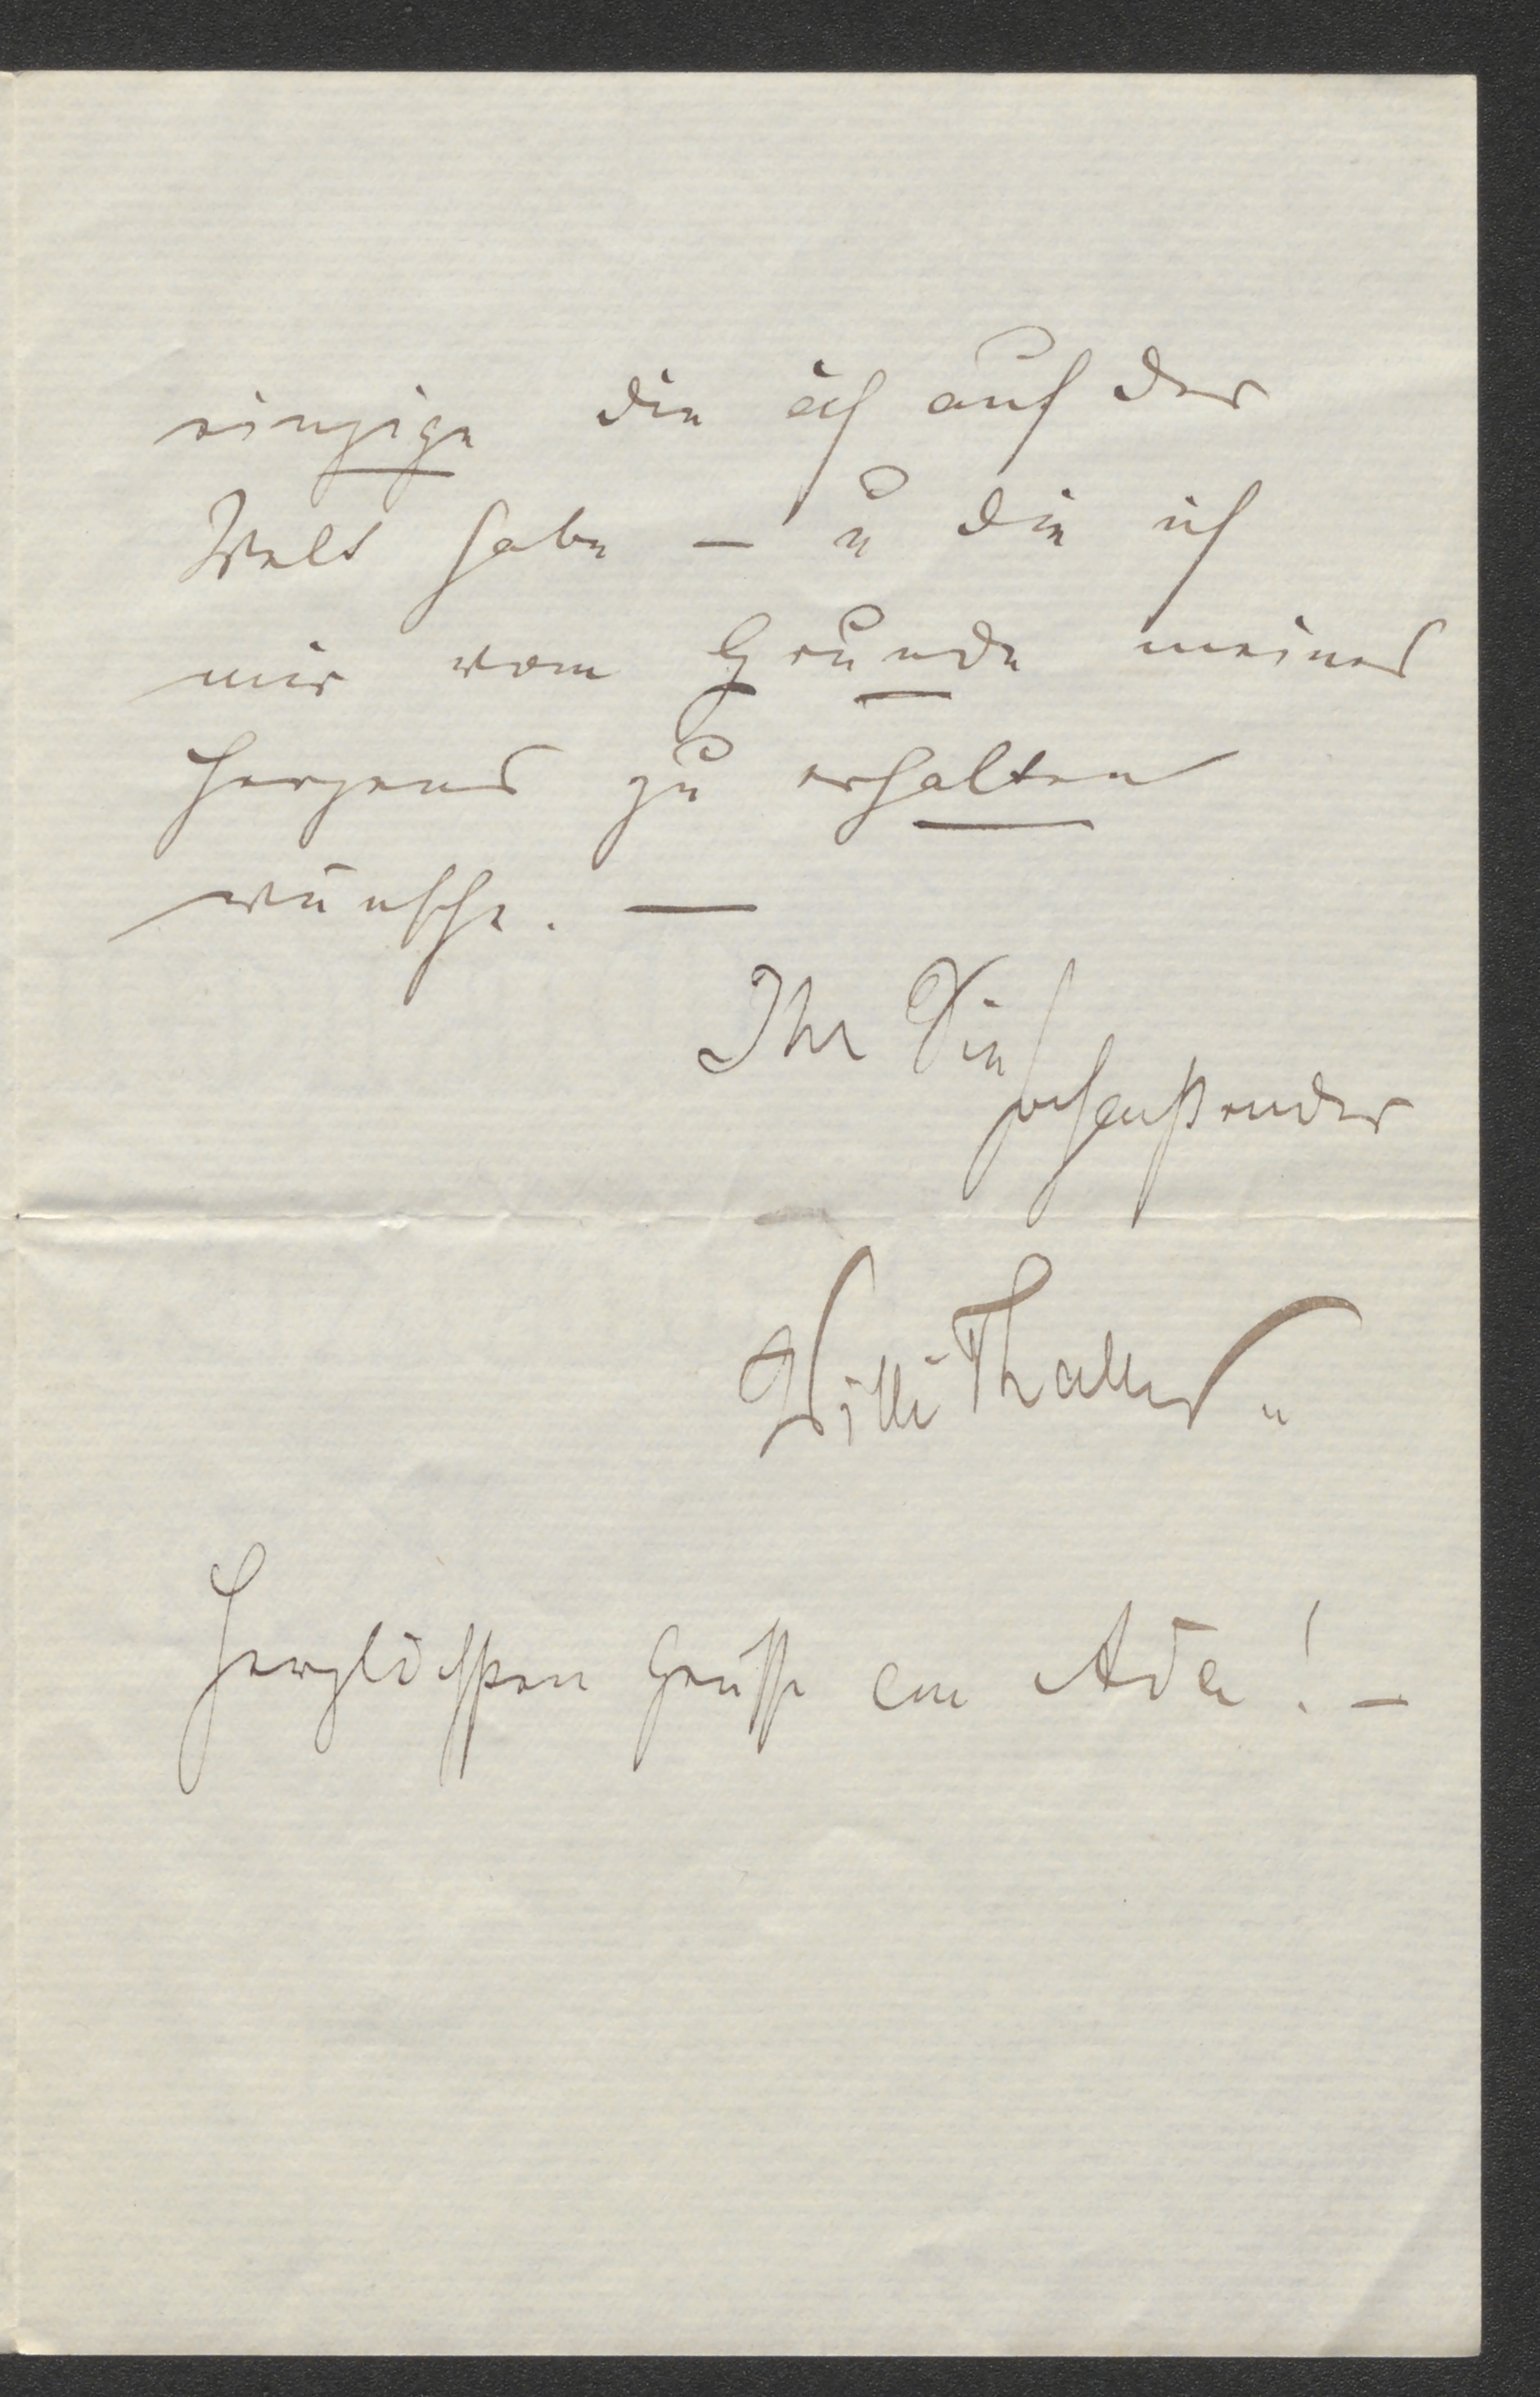 einzige die ich auf der
Welt habe – u die ich
mir vom Grunde meines
Herzens zu erhalten
wünsche. —
Ihr Sie
hochachtender
Willi Thaller
Herzlichsten Gruß an Ada! –